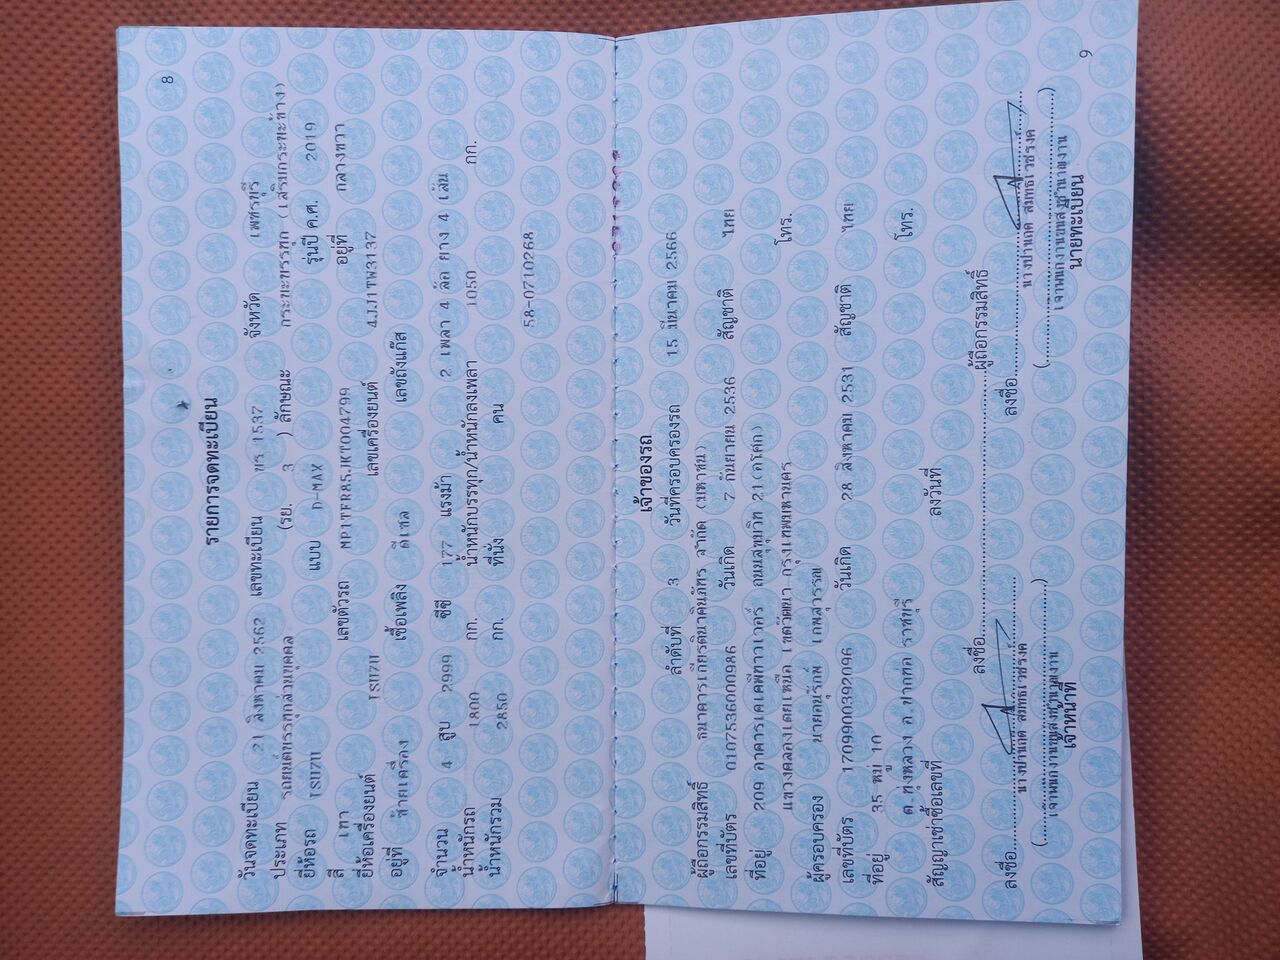 8
รายการจดทะเบียน
วันจดทะเบียน 21 สิงหาคม 2562 เลขทะเบียน 1537 จังหวัด เพชรบุรี
ประเภท รถยนต์บรรทุกส่วนบุคคล (รย. 3 ) ลักษณะ กระบะบรรทุก (เสริมกระบะข้าง)
ยี่ห้อรถ ISUZU แบบ D-MAX รุ่นปี ค.ศ. 2019
สี เทา เลขตัวรถ MP1TFR85JKT004799 อยู่ที่ กลางขวา
ยี่ห้อเครื่องยนต์ ISUZU เลขเครื่องยนต์ 4JJ1TW3137
อยู่ที่ ซ้ายเครื่อง เชื้อเพลิง ดีเซล เลขถังแก๊ส
จำนวน 4 สูบ 2999 ซีซี 177 แรงม้า 2 เพลา 4 ล้อ ยาง 4 เส้น
น้ำหนักรถ 1800 กก. น้ำหนักบรรทุก/น้ำหนักลงเพลา 1050 กก.
น้ำหนักรวม 2850 กก. ที่นั่ง คน
58-0710268
เจ้าของรถ
ลำดับที่ 3 วันที่ครอบครองรถ 15 มีนาคม 2566
ผู้ถือกรรมสิทธิ์ ธนาคารเกียรตินาคินภัทร จำกัด (มหาชน)
เลขที่บัตร 0107536000986 วันเกิด 7 กันยายน 2536 สัญชาติ ไทย
ที่อยู่ 209 อาคารเคเคพีทาวเวอร์ ถนนสุขุมวิท 21 (อโศก)
แขวงคลองเตยเหนือ เขตวัฒนา กรุงเทพมหานคร โทร.
ผู้ครอบครอง
เลขที่บัตร 1709900392096 วันเกิด 28 สิงหาคม 2531 สัญชาติ ไทย
ที่อยู่ 35 หมู่ 10
ต.ทุ่งหลวง อ.ปากท่อ ราชบุรี โทร.
สัญญาเช่าซื้อเลขที่ ลงวันที่
ลงชื่อ ผู้ถือกรรมสิทธิ์
ลงชื่อ ลงชื่อ
เจ้าพนักงานขนส่งชำนาญงาน เจ้าพนักงานขนส่งชำนาญงาน
เจ้าหน้าที่ นายทะเบียน
9